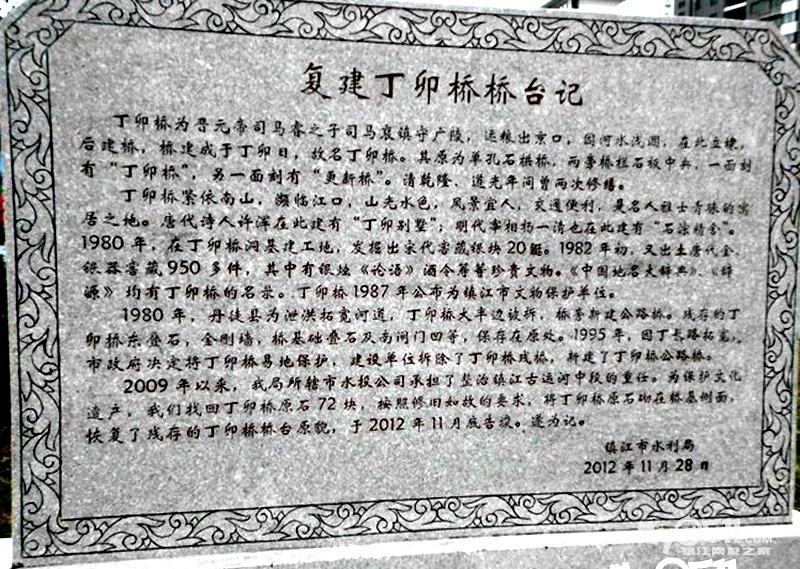 复建丁卯桥桥台记
丁卯桥为晋元帝司马睿之子司马裒镇守广陵，运粮出京口，因河水浅涸，在此立埭，
后建桥，桥建成于丁卯日，故名丁卯桥。其原为单孔石栱桥，两旁桥栏石板中央，一面刻
有“丁卯桥”，另一面刻有“更新桥”。清乾隆、道光年间曾两次修缮。
丁卯桥紧依南山，濒临江口，山光水色，风景宜人，交通便利，是名人雅士青睐的寓
居之地。唐代诗人许浑在此建有“丁卯别墅”；明代宰相杨一清也在此建有“石淙精舍”。
1980年，在丁卯桥涧基建工地，发掘出宋代窖藏银块20艇。1982年初，又出土唐代金、
银器窖藏950多件，其中有银烛《论语》酒令筹等珍贵文物。《中国地名大辞典》、《辞
源》均有丁卯桥的名录。丁卯桥1987年公布为镇江市文物保护单位。
1980年，丹徒县为泄洪拓宽河道，丁卯桥大半边被拆，桥旁新建公路桥。残存的丁
卯桥东叠石，金刚墙，桥基础叠石及南闸门凹等，保存在原处。1995年，因丁长路拓宽，
市政府决定将丁卯桥易地保护，建设单位拆除了丁卯桥残桥，新建了丁卯桥公路桥。
2009年以来，我局所辖市水投公司承担了整治镇江古运河中段的重任。为保护文化
遗产，我们找回丁卯桥原石72块，按照修旧如故的要求，将丁卯桥原石砌在桥基侧面，
恢复了残存的丁卯桥桥台原貌，于2012年11月底告竣。遂为记。
镇江市水利局
2012年11月28日
镇江网友之家